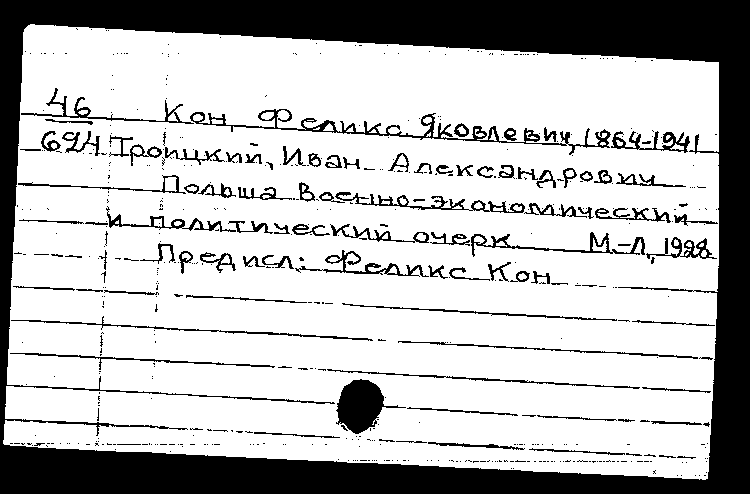 46 Кон, Феликс Яковлевич, 1864-1941
694 Троицкий, Иван Александрович
Польша Военно-экономический
и политический очерк М.-Л., 1928
Предисл: Феликс Кон